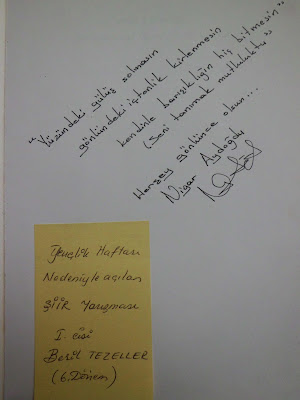 "Yüzündeki gülüş solmasın
gönlündeki içtenlik kirlenmesin
kendinle barışıklığın hiç bitmesin"
(Seni tanımak mutluluktu)
Herşey gönlünce olsun...
Nigar Aydoğdu
Gençlik Haftası
Nedeniyle açılan
ŞİİR Yarışması
I. cisi
Beril TEZELLER
(6. Dönem)